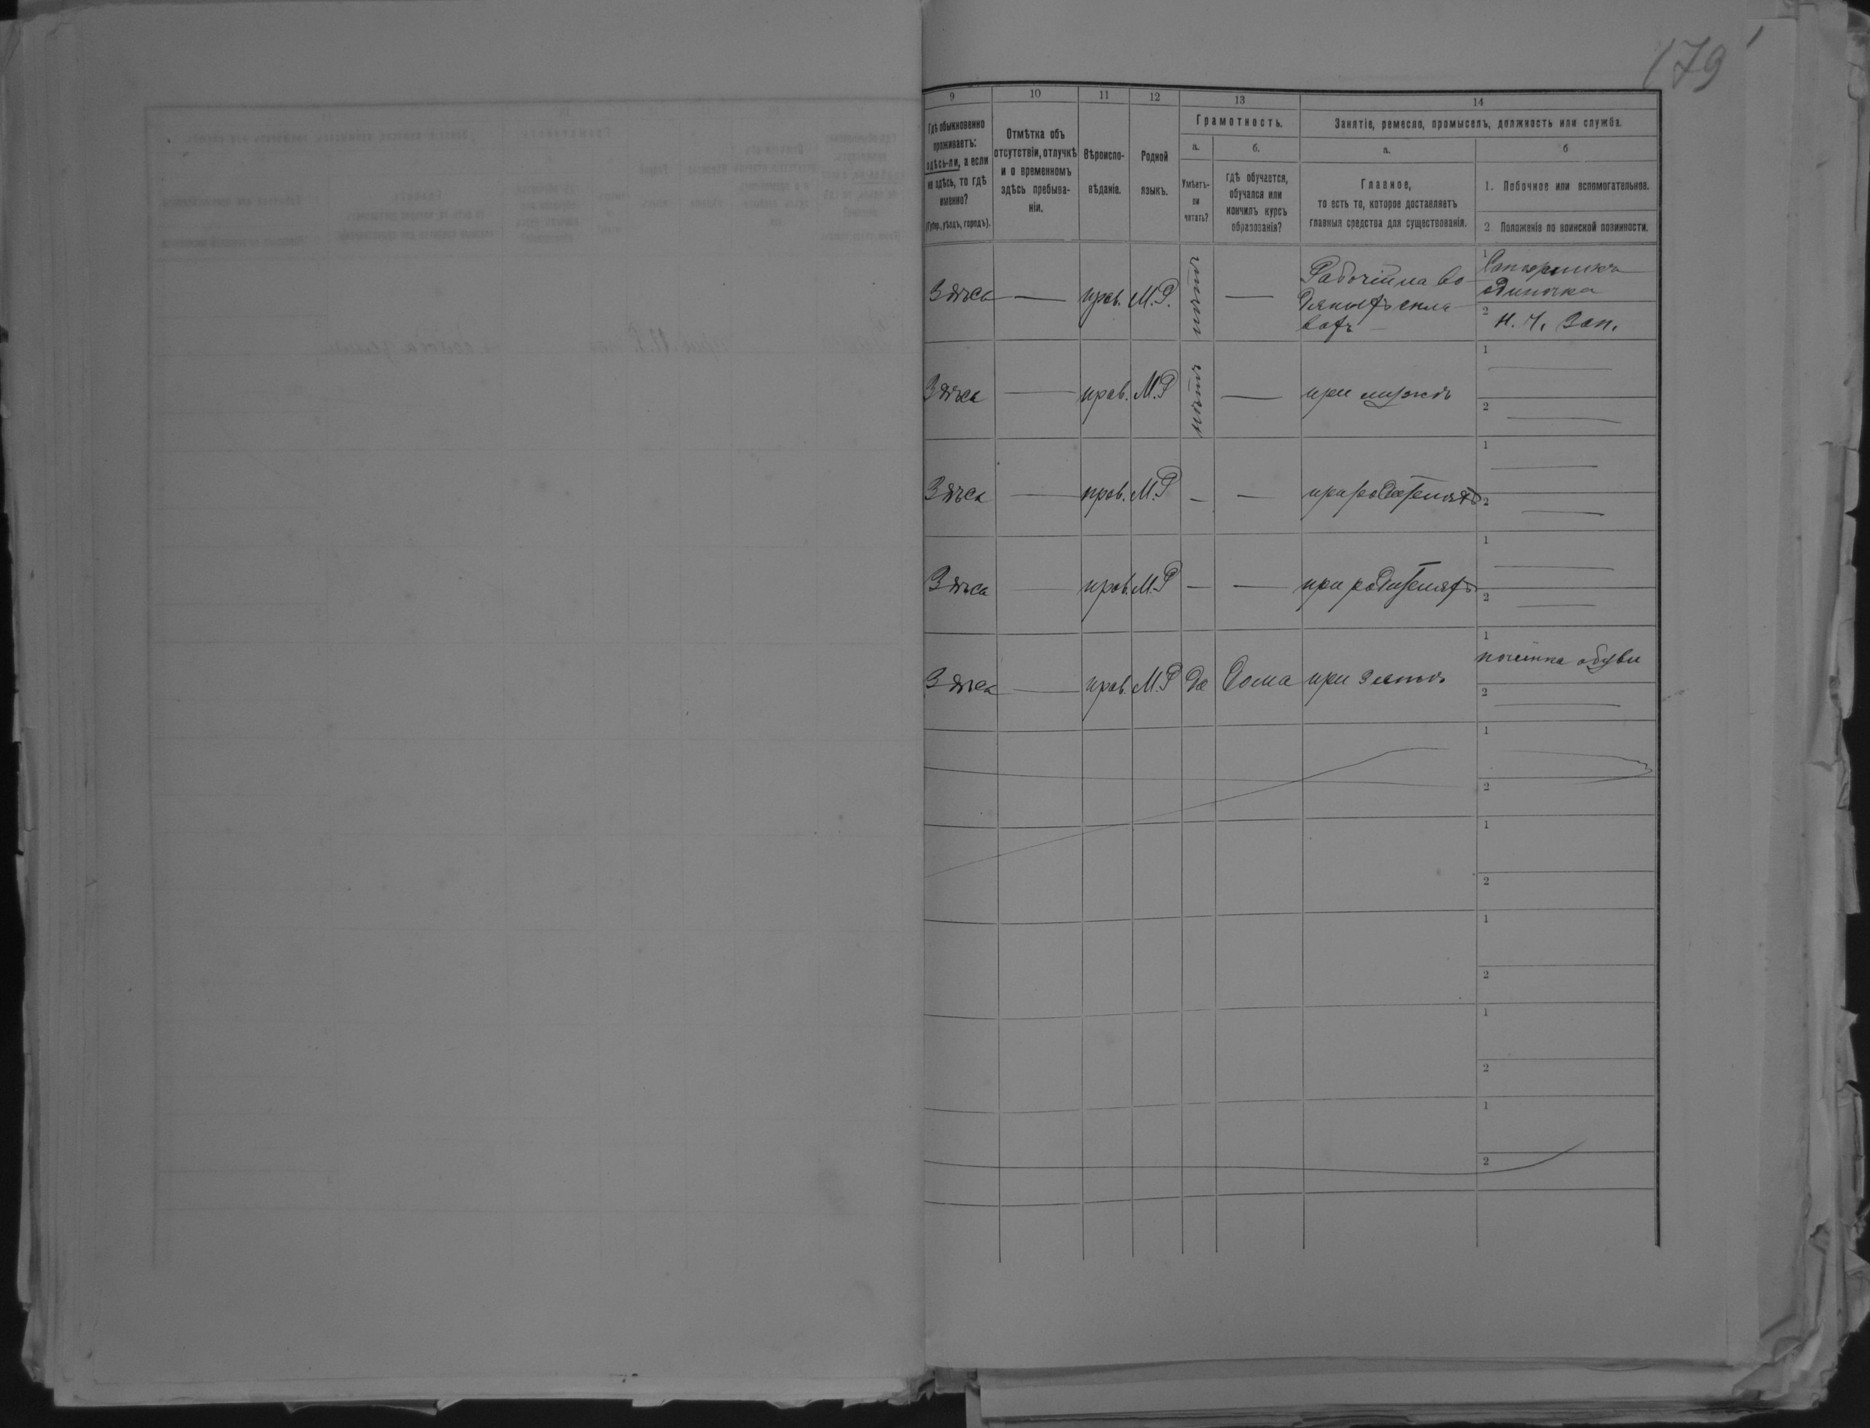 179
9 10 11 12 13 14
Гдѣ обыкновенно
проживаетъ:
здѣсь-ли, а если
не здѣсь, то гдѣ
именно?
(Губер., уѣздъ, городъ).
Отмѣтка объ
отсутствіи, отлучкѣ
и о временномъ
здѣсь пребыва-
ніи.
Вѣроиспо-
вѣданіе.
Родной
языкъ.
Грамотность.
а.
Умѣетъ-
ли
читать?
б.
гдѣ обучается,
обучался или
кончилъ курсъ
образованія?
Занятіе, ремесло, промыселъ, должность или служба.
а.
Главное,
то есть то, которое доставляетъ
главныя средства для существованія.
б
1. Побочное или вспомогательное.
2 Положеніе по воинской повинности.
Здѣсь — прав. М.Р. нѣтъ — Рабочій на во
1
2 Н. Ч. Зап.
Здѣсь — прав. М.Р нѣтъ — при мужѣ
1 —
2 —
Здѣсь — прав. М.Р — — при родителяхъ
1 —
2 —
Здѣсь — прав. М.Р — — при родителяхъ
1 —
2 —
Здѣсь — прав. М.Р да Дома при зятѣ
1 починка обуви
2 —
1
2
1
2
1
2
1
2
1
2